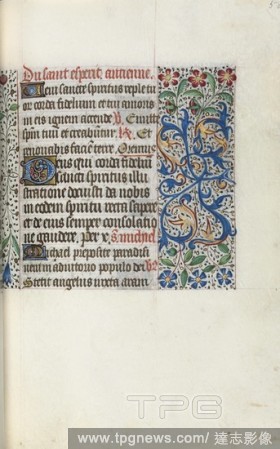 Du saint esperit ancienne.
Ueni sancte spiritus reple tu
or corda fidelium et tui amoris
in eis ignem accende ℣. Emitte
spm tuu et creabunt ℟. Et
renouabis faciē terre. Oremus
Deus qui corda fideliū
sancti spiritus illu
stratione docuisti da nobis
in eodem spiritu recta sapere
et de eius semper consolatio
ne gaudere. Per x. s. michel
Michael preposite paradisi
ueni in adiutorio populo dei ℣
Stetit angelus iuxta aram
TPG
www.tpgnews.com/達志影像